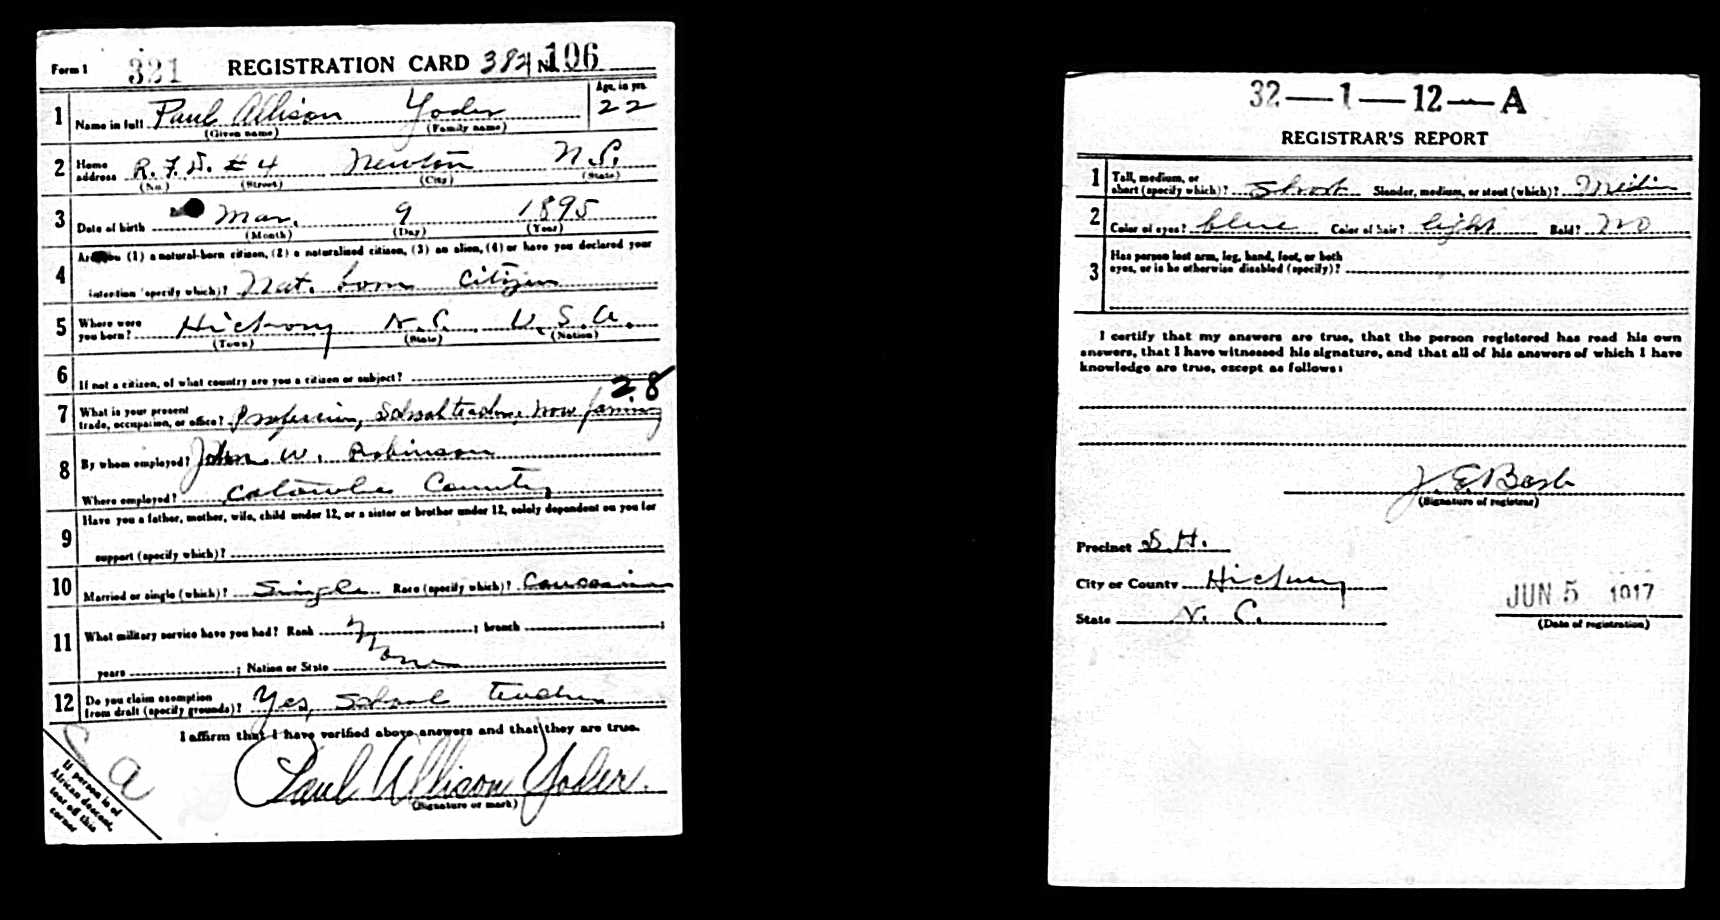 Form 1 321 REGISTRATION CARD 384 No. 106
1 Name in full Paul Allison Yoder Age, in yrs. 22
(Given name) (Family name)
2 Home address R. F. D. # 4 Newton N. C.
(No.) (Street) (City) (State)
3 Date of birth Mar. 9 1895
(Month) (Day) (Year)
4 Are you (1) a natural-born citizen, (2) a naturalized citizen, (3) an alien, (4) or have you declared your
intention (specify which)? Nat. born citizen
5 Where were you born? Hickory N. C. U. S. A.
(Town) (State) (Nation)
6 If not a citizen, of what country are you a citizen or subject?
28
7 What is your present trade, occupation, or office? Profession, School teacher, now farming
8 By whom employed? John W. Robinson
Where employed? Catawba County
9 Have you a father, mother, wife, child under 12, or a sister or brother under 12, solely dependent on you for
support (specify which)?
10 Married or single (which)? Single Race (specify which)? Caucasian
11 What military service have you had? Rank None ; branch ;
years ; Nation or State
12 Do you claim exemption from draft (specify grounds)? Yes, School teacher
I affirm that I have verified above answers and that they are true.
Paul Allison Yoder.
(Signature or mark)
If person is of
African descent,
tear off this
corner
32—1—12—A
REGISTRAR'S REPORT
1 Tall, medium, or short (specify which)? Short Slender, medium, or stout (which)? Medium
2 Color of eyes? blue Color of hair? light Bald? No
3 Has person lost arm, leg, hand, foot, or both
eyes, or is he otherwise disabled (specify)?
I certify that my answers are true, that the person registered has read his own
answers, that I have witnessed his signature, and that all of his answers of which I have
knowledge are true, except as follows:
(Signature of registrar)
Precinct S. H.
City or County Hickory
JUN 5 1917
State N. C.
(Date of registration)